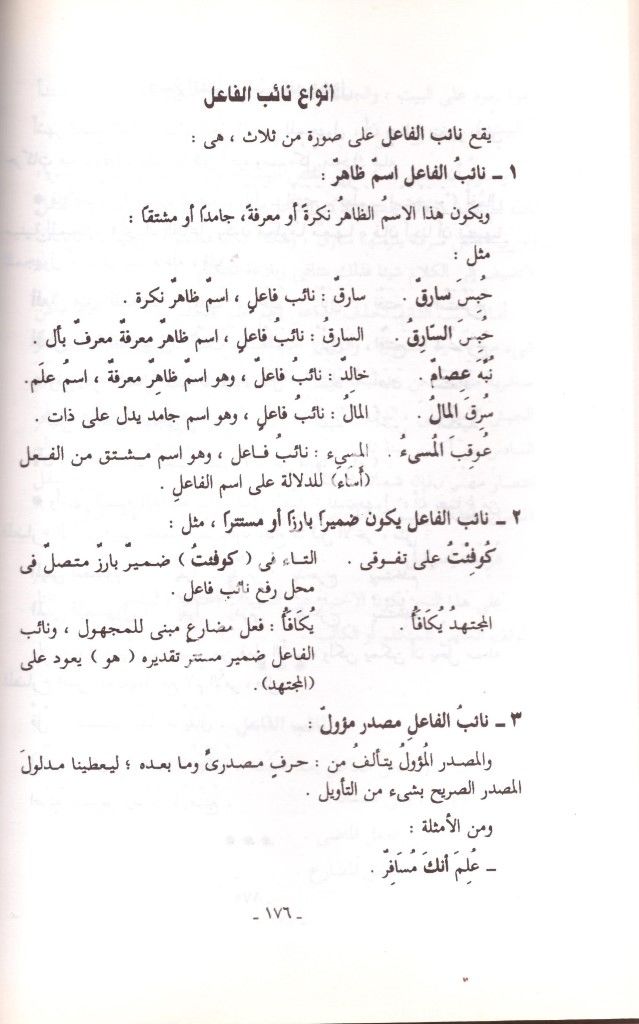 أنواع نائب الفاعل
يقع نائب الفاعل على صورة من ثلاث ، هى :
١ ـ نائبُ الفاعل اسمٌ ظاهرٌ :
ويكون هذا الاسمُ الظاهرُ نكرةً أو معرفةً، جامدًا أو مشتقا :
مثل :
حُبسَ سارقٌ . سارقٌ : نائب فاعلٍ ، اسمٌ ظاهرٌ نكرة .
حُبِسَ السّارِقُ . السارقُ : نائبُ فاعلٍ ، اسم ظاهرٌ معرفةٌ معرفٌ بأل .
نُبِّهَ عِصامٌ . خالدٌ : نائبُ فاعلٍ ، وهو اسمٌ ظاهِرٌ معرفة ، اسمُ علَم.
سُرِقَ المَالُ . المالُ : نائبُ فاعلٍ ، وهو اسم جامد يدل على ذات .
عُوقِبَ المُسىءُ . المسِىء : نائبُ فـاعل ، وهو اسم مـشـتق من الفـعل
(أساء) للدلالة على اسم الفاعلِ .
٢ ـ نائب الفاعل يكون ضميرًا بارزًا أو مستترًا ، مثل :
كُوفِئْتُ على تفـوقى . التـاء فى ( كوفئتُ ) ضميـرٌ بارزٌ متصلٌ فى
محل رفع نائب فاعل .
المجتهدُ يُكَافَأُ . يُكَافَأُ : فعل مضارع مبنى للمجهول ، ونائب
الفاعل ضمير مستترٌ تقديره ( هو ) يعود على
(المجتهد).
٣ ـ نائبُ الفاعلِ مصدر مؤولٌ :
والمصدر المُؤولُ يتألفُ من : حـرفٍ مـصدرىٍّ وما بعده ؛ ليـعطينا مـدلولَ
المصدر الصريح بشىء من التأويل .
ومن الأمثلة :
ـ عُلِمَ أنكَ مُسَافِرٌ .
ـ ١٧٦ ـ